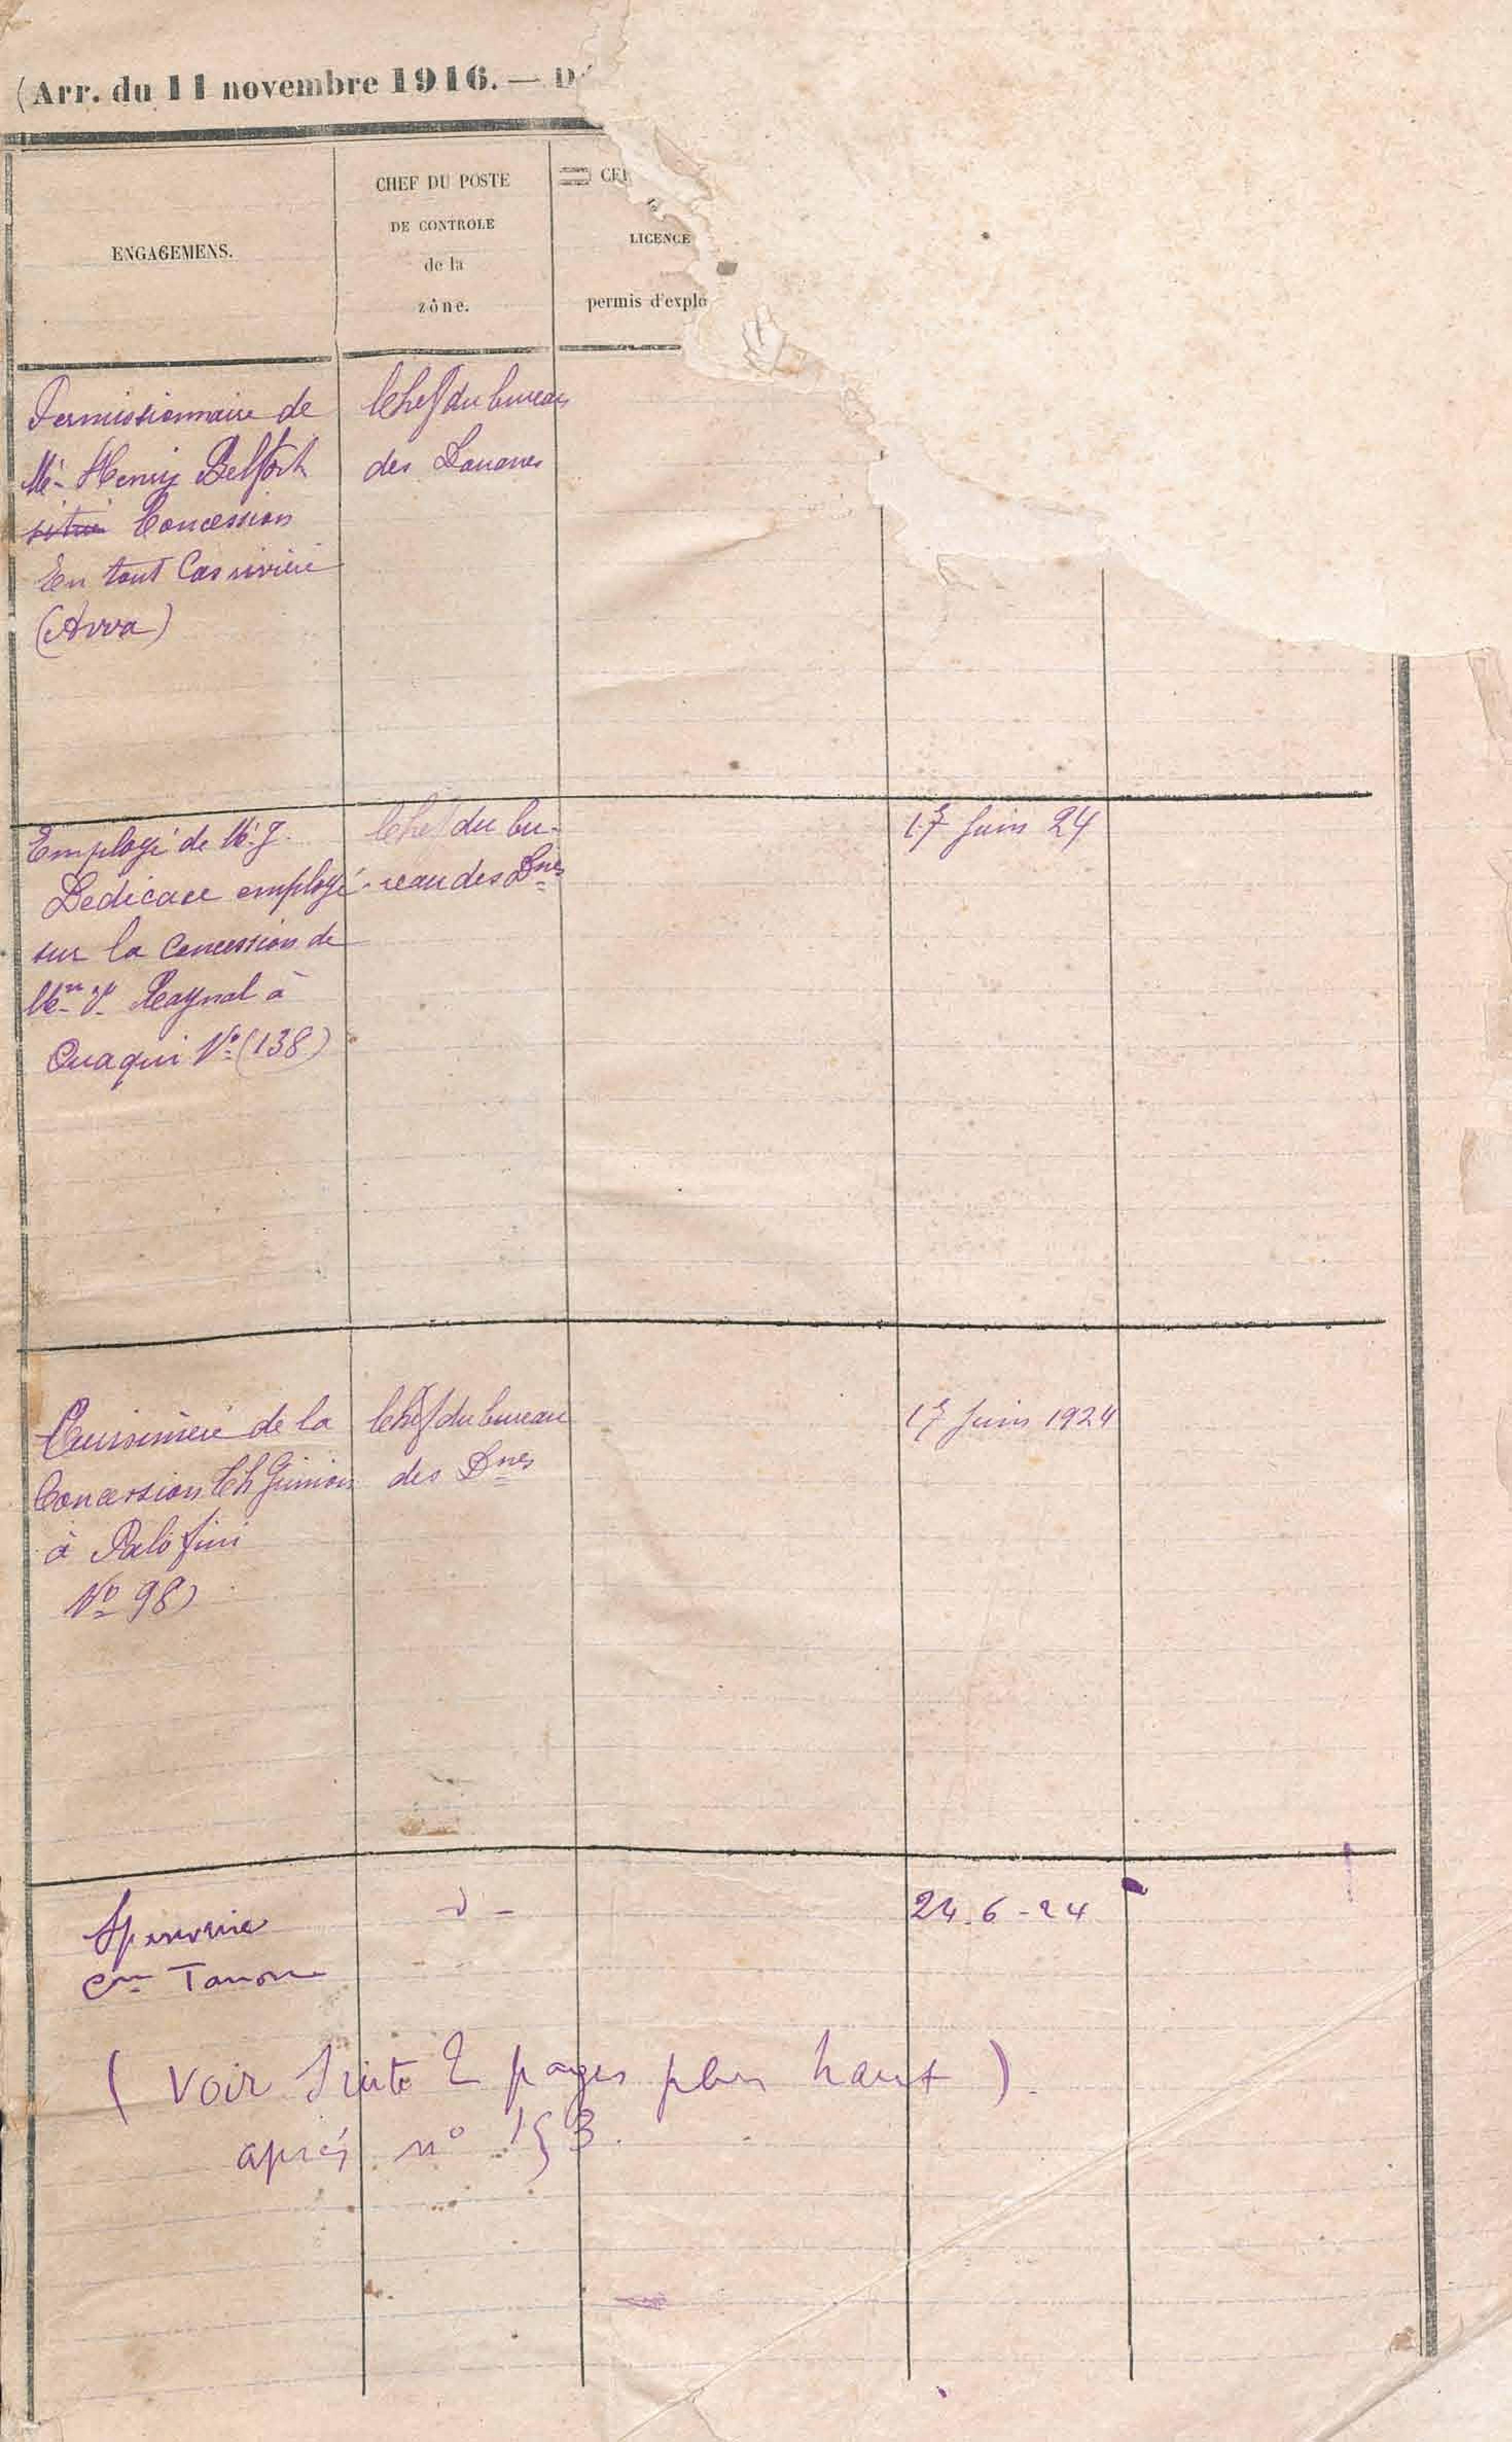 (Arr. du 11 novembre 1916. — Dé
ENGAGEMENS.
CHEF DU POSTE
DE CONTROLE
de la
zône.
LICENCE
permis d'explo
Permissionnaire de
Mr Henry Belfort
situé Concession
En tout Cas rivière
(Arva)
Chef du bureau
des Douanes
Employé de Mr J.
Dedicace employé
sur la Concession de
Mme Vve Raynal à
Quaqui No (138)
Chef du bu-
-reau des Dnes
17 Juin 24
Cuisinière de la
Concession Ch
à Palofini
No 98)
Chef du bureau
des Dnes
17 Juin 1924
24-6-24
( Voir Suite 2 pages plus haut ).
après no 153.